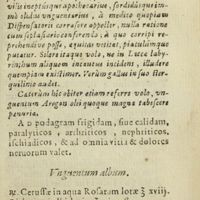 vilis ineptisque apothecarius, sordidusque im-
mò olidus vnguentarius, à medico quopiam
Dispensatorii corrasor appellor, nulla ratione
cum sycophasio conferendo: A quo corripi
reprehendive posse, æquitas vetitet, piaculumque
putatur. Solere itaque volo, ne in Labe labey-
rinthum aliquem inconutus incidens, illudere
quempiam existimer. Verùm gallus in suo ster-
quilinio audet.
Cæterùm hic obiter etiam referre volo, vn-
guentum Aregon olii quoque magna laborare
penuria.
AD podagram frigidam, siue calidam,
paralyticos, arthriticos, nephriticos,
ischiadicos, & ad omnia vitia & dolores
neruorum valet.
Vnguentum album.
℞. Cerussæ in aqua Rosarum lotæ ℥ xviij.